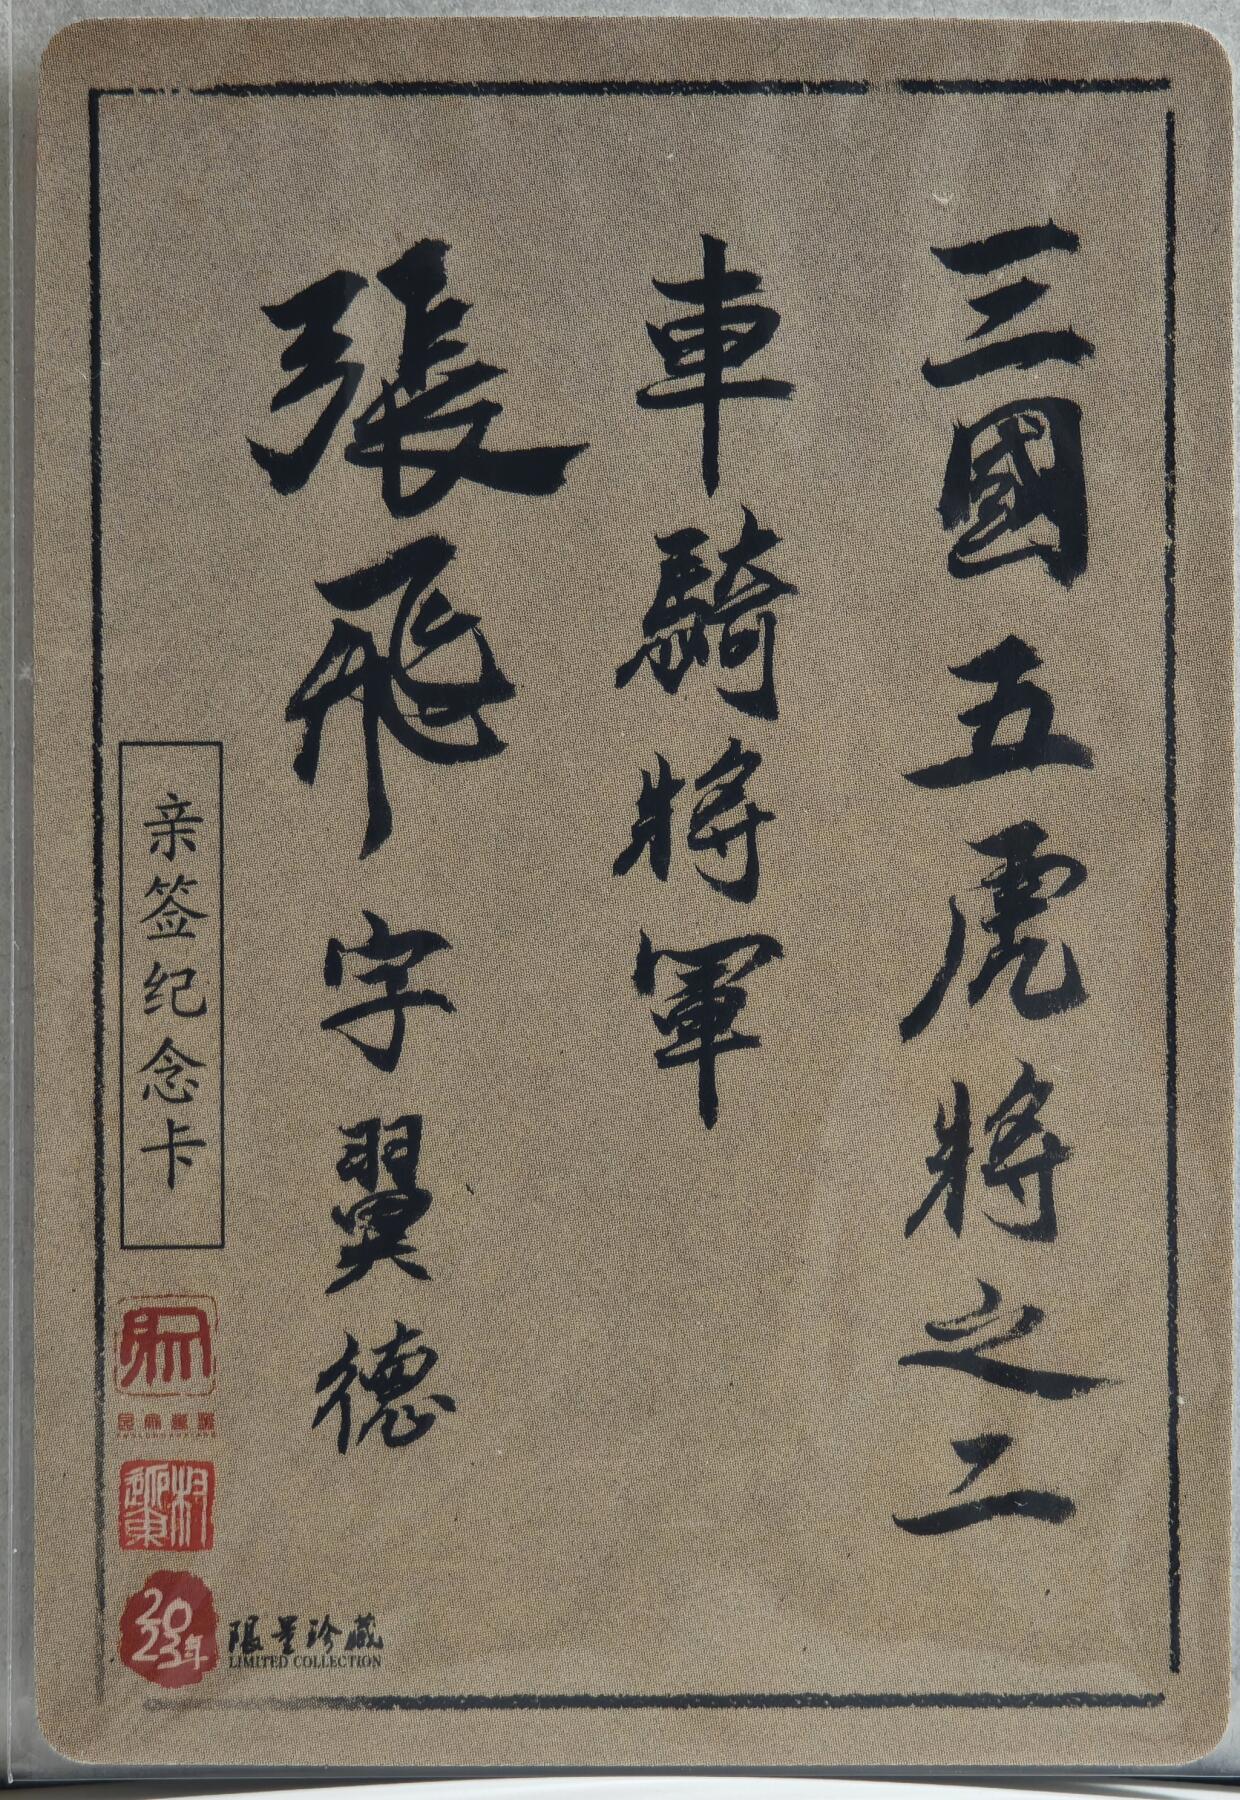 三國五虎將之二
車騎將軍
張飛字翼德
亲签纪念卡
2023年
限量珍藏
LIMITED COLLECTION